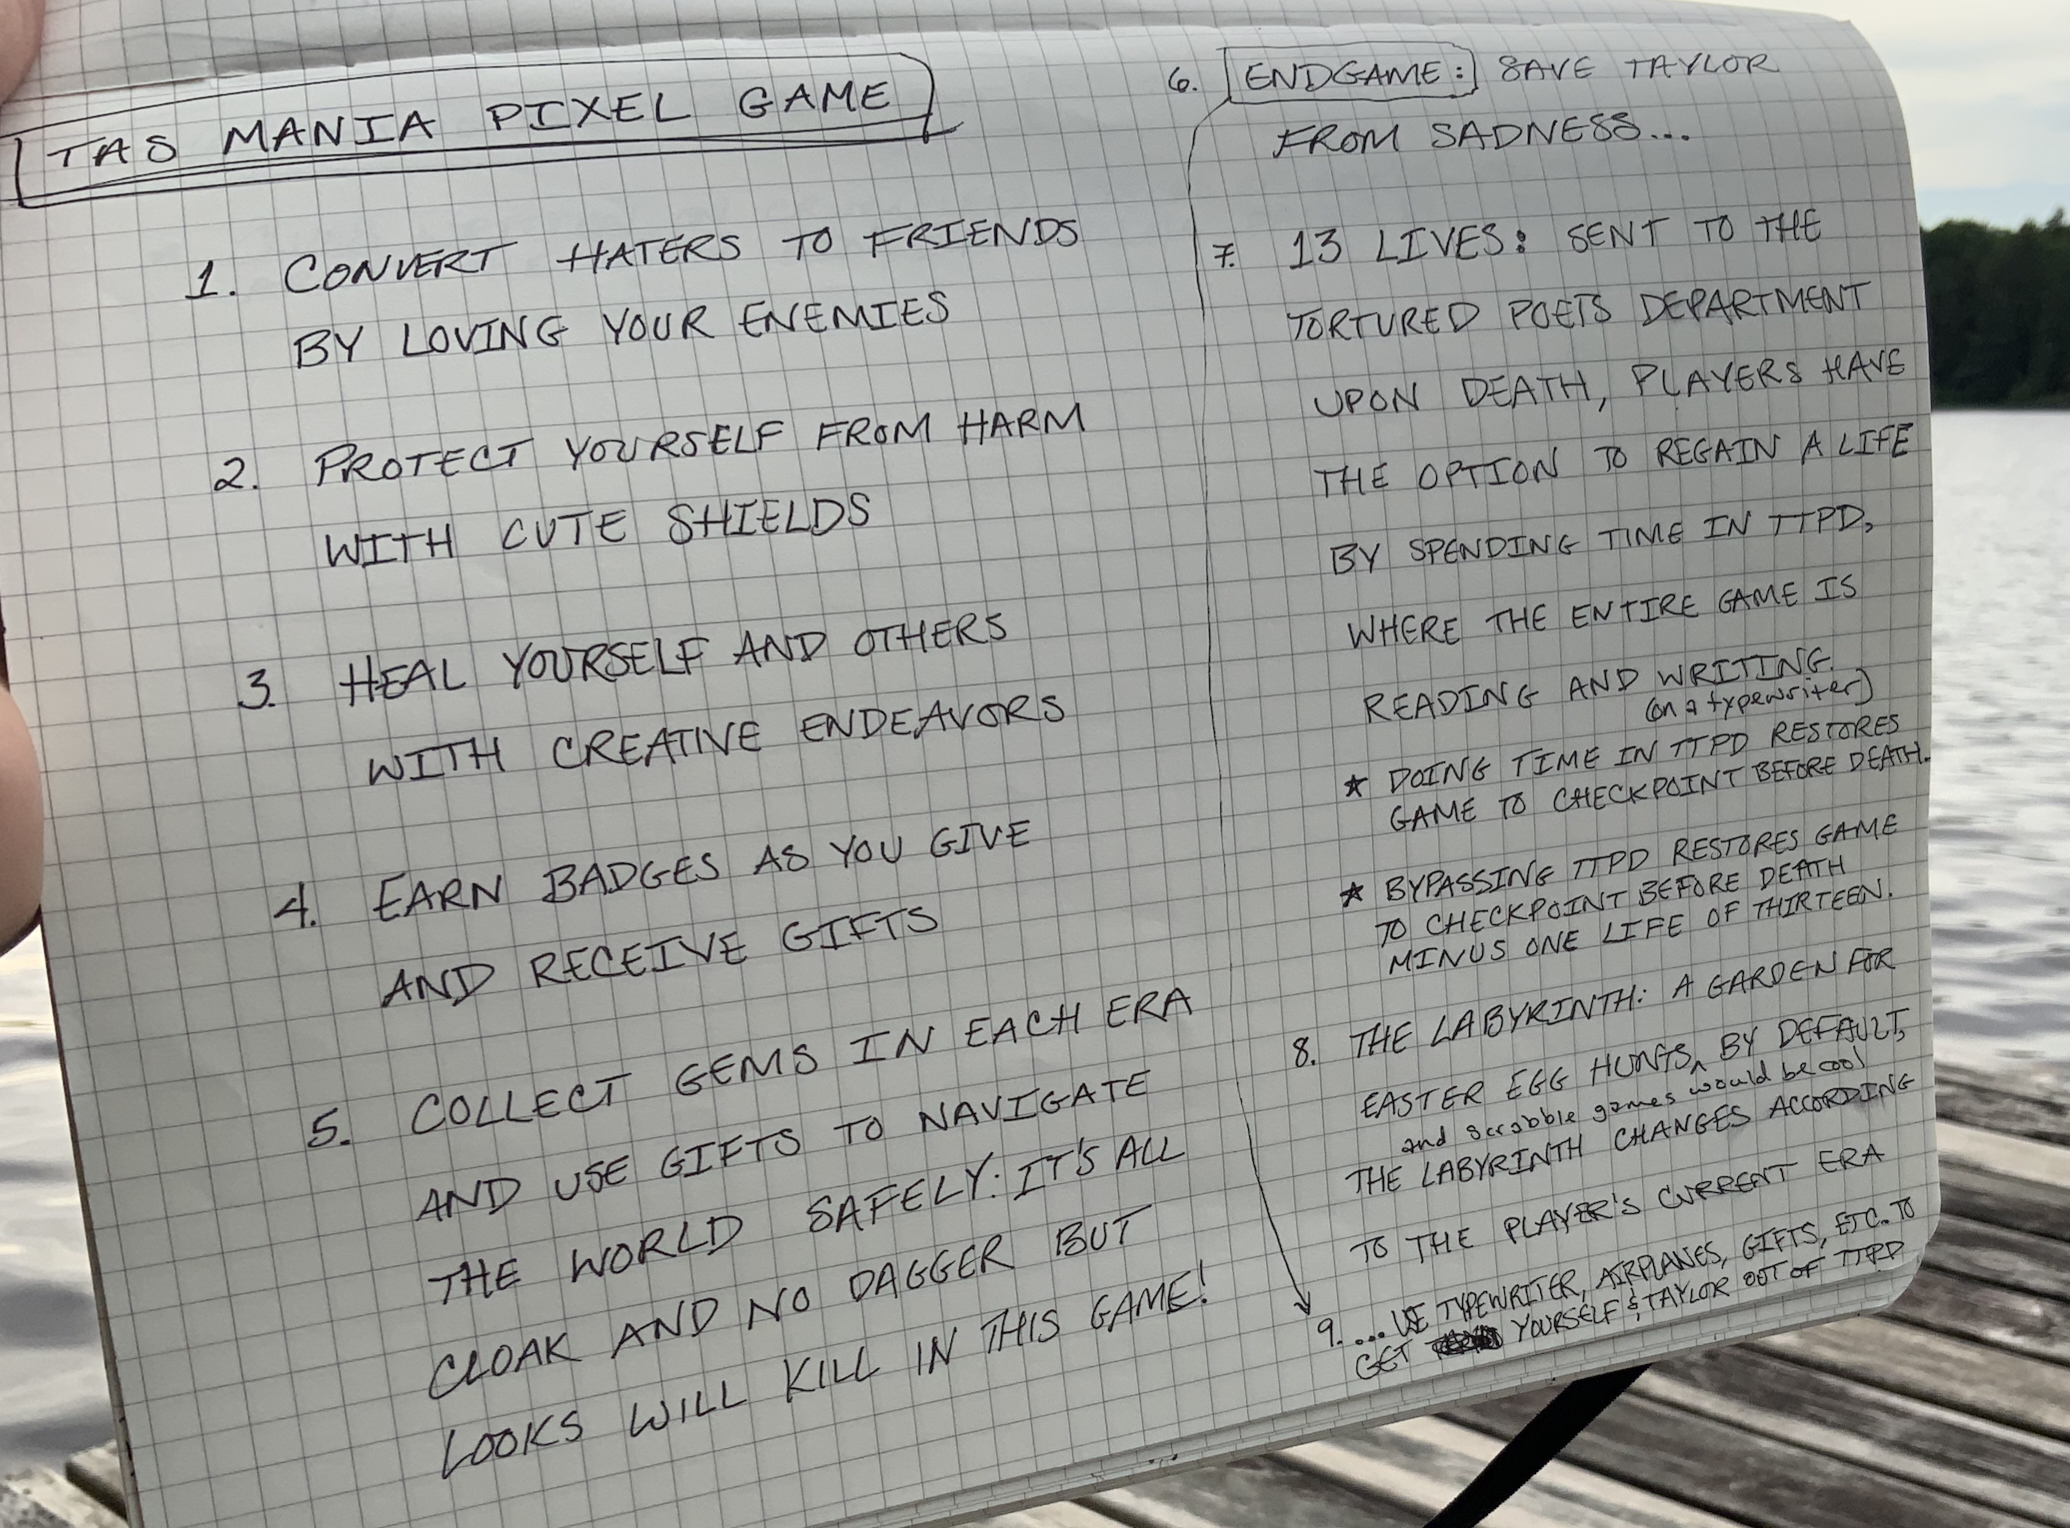 TAS MANIA PIXEL GAME
1. CONVERT HATERS TO FRIENDS
BY LOVING YOUR ENEMIES
2. PROTECT YOURSELF FROM HARM
WITH CUTE SHIELDS
3. HEAL YOURSELF AND OTHERS
WITH CREATIVE ENDEAVORS
4. EARN BADGES AS YOU GIVE
AND RECEIVE GIFTS
5. COLLECT GEMS IN EACH ERA
AND USE GIFTS TO NAVIGATE
THE WORLD SAFELY: IT'S ALL
CLOAK AND NO DAGGER BUT
LOOKS WILL KILL IN THIS GAME!
6. ENDGAME: SAVE TAYLOR
FROM SADNESS...
7. 13 LIVES: SENT TO THE
TORTURED POETS DEPARTMENT
UPON DEATH, PLAYERS HAVE
THE OPTION TO REGAIN A LIFE
BY SPENDING TIME IN TTPD,
WHERE THE ENTIRE GAME IS
READING AND WRITING.
(on a typewriter)
★ DOING TIME IN TTPD RESTORES
GAME TO CHECKPOINT BEFORE DEATH.
★ BYPASSING TTPD RESTORES GAME
TO CHECKPOINT BEFORE DEATH
MINUS ONE LIFE OF THIRTEEN.
8. THE LABYRINTH: A GARDEN FOR
EASTER EGG HUNTS, BY DEFAULT,
^ and scrabble games would be cool
THE LABYRINTH CHANGES ACCORDING
TO THE PLAYER'S CURRENT ERA
9. ... USE TYPEWRITER, AIRPLANES, GIFTS, ETC. TO
GET YOURSELF & TAYLOR OUT OF TTPD